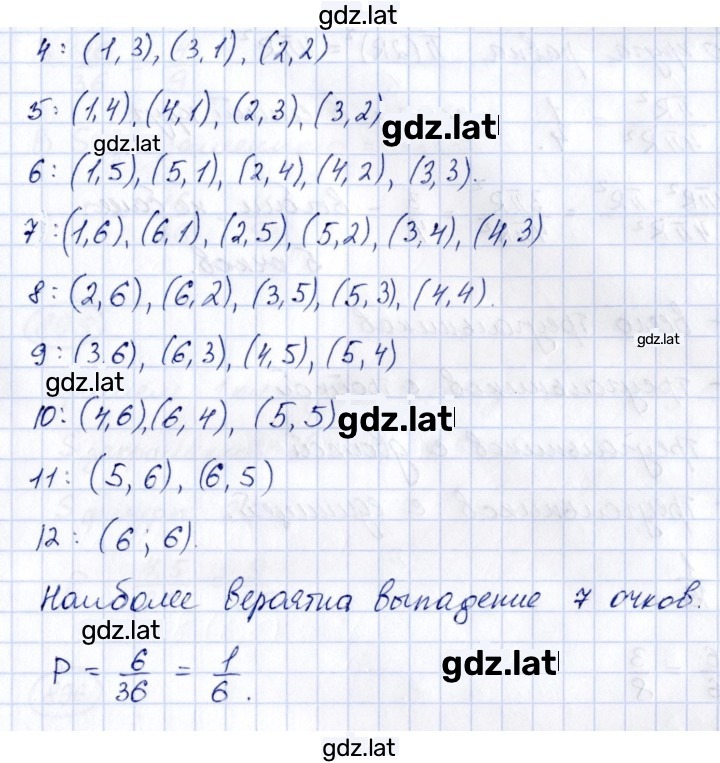 gdz.lat
4: (1,3), (3,1), (2,2)
5: (1,4), (4,1), (2,3), (3,2)
gdz.lat
gdz.lat
6: (1,5), (5,1), (2,4), (4,2), (3,3).
7: (1,6), (6,1), (2,5), (5,2), (3,4), (4,3)
8: (2,6), (6,2), (3,5), (5,3), (4,4).
gdz.lat
9: (3.6), (6,3), (4,5), (5,4)
gdz.lat
10: (4,6), (6,4), (5,5)
gdz.lat
11: (5,6), (6,5)
12: (6; 6).
Наиболее вероятна выпадение 7 очков.
gdz.lat
P = 6/36 = 1/6.
gdz.lat
gdz.lat